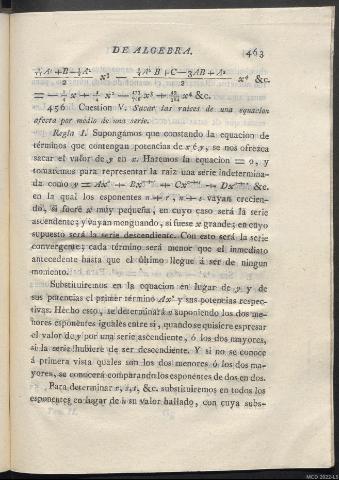 DE ALGEBRA. 463
= −
456 Cuestion V. Sacar las raices de una equacion
afecta por medio de una serie.
Regla I. Supongamos que constando la equacion de
términos que contengan potencias de x é y, se nos ofrezca
sacar el valor de y en x. Haremos la equacion = 0, y
tomaremos para representar la raiz una serie indetermina-
da como y = Axⁿ + Bxⁿ⁺ʳ + Cxⁿ⁺ˢ + Dxⁿ⁺ᵗ &c.
en la qual los esponentes n + r, n + s vayan crecien-
do, si fuere x muy pequeña, en cuyo caso será la serie
ascendente; y vayan menguando, si fuese x grande; en cuyo
supuesto será la serie descendiente. Con esto será la serie
convergente; cada término será menor que el inmediato
antecedente hasta que el último llegue á ser de ningun
momento.
Substituiremos en la equacion en lugar de y y de
sus potencias el primer término Axⁿ y sus potencias respec-
tivas. Hecho esto, se determinará n suponiendo los dos me-
nores esponentes iguales entre sí, quando se quisiere espresar
el valor de y por una serie ascendiente, ó los dos mayores,
si la serie hubiere de ser descendiente. Y si no se conoce
á primera vista quales son los dos menores ó los dos ma-
yores, se conocerá comparando los esponentes de dos en dos.
Para determinar r, s, t, &c. substituiremos en todos los
esponentes en lugar de n su valor hallado, con cuya subs-
MCD 2022-L5